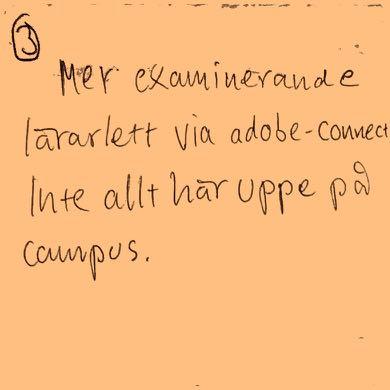 3
Mer examinerande
lärarlett via adobe-connect
Inte allt här uppe på
campus.